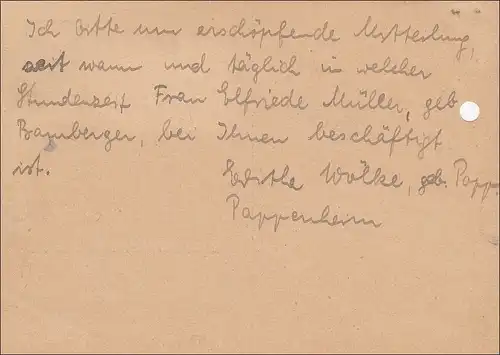 Ich bitte um erschöpfende Mitteilung,
seit wann und täglich in welcher
Stundenzeit Frau Elfriede Müller, geb
Bamberger, bei Ihnen beschäftigt
ist.
Wölke, geb. Papp
Pappenheim